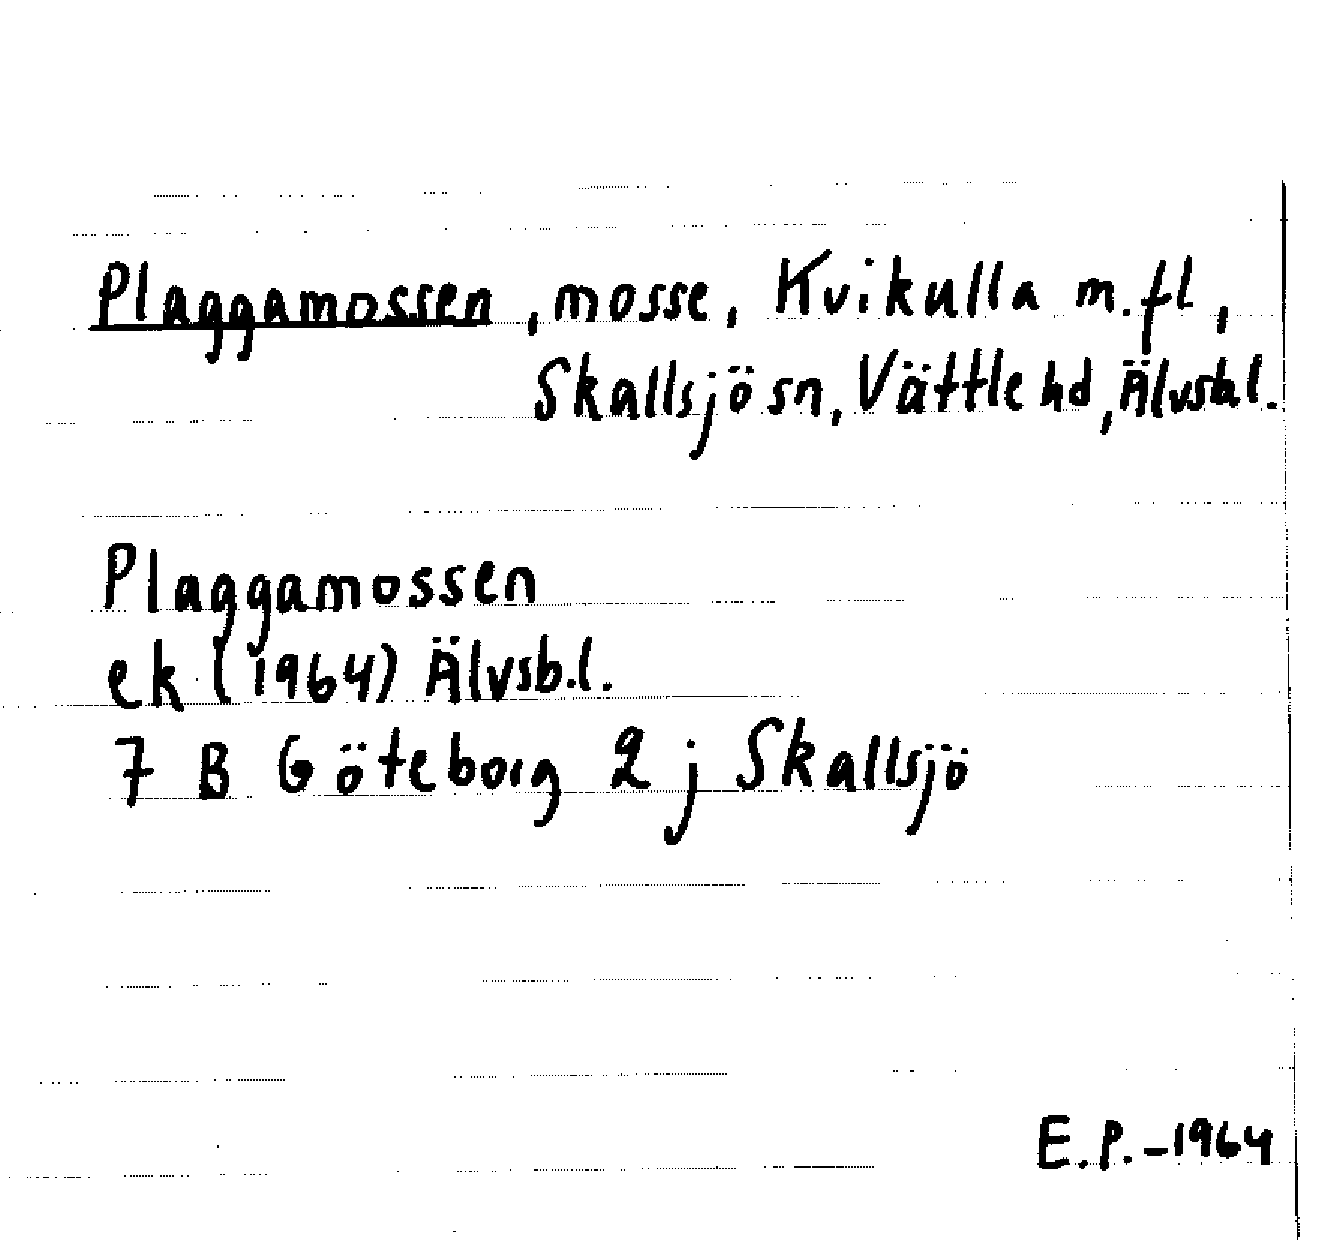 Plaggamossen, mosse, Kvikulla m.fl,
Skallsjö sn, Vättle hd, Älvsb.l.
Plaggamossen
ek (1964) Älvsb.l.
7 B Göteborg 2 j Skallsjö
E.P.-1964